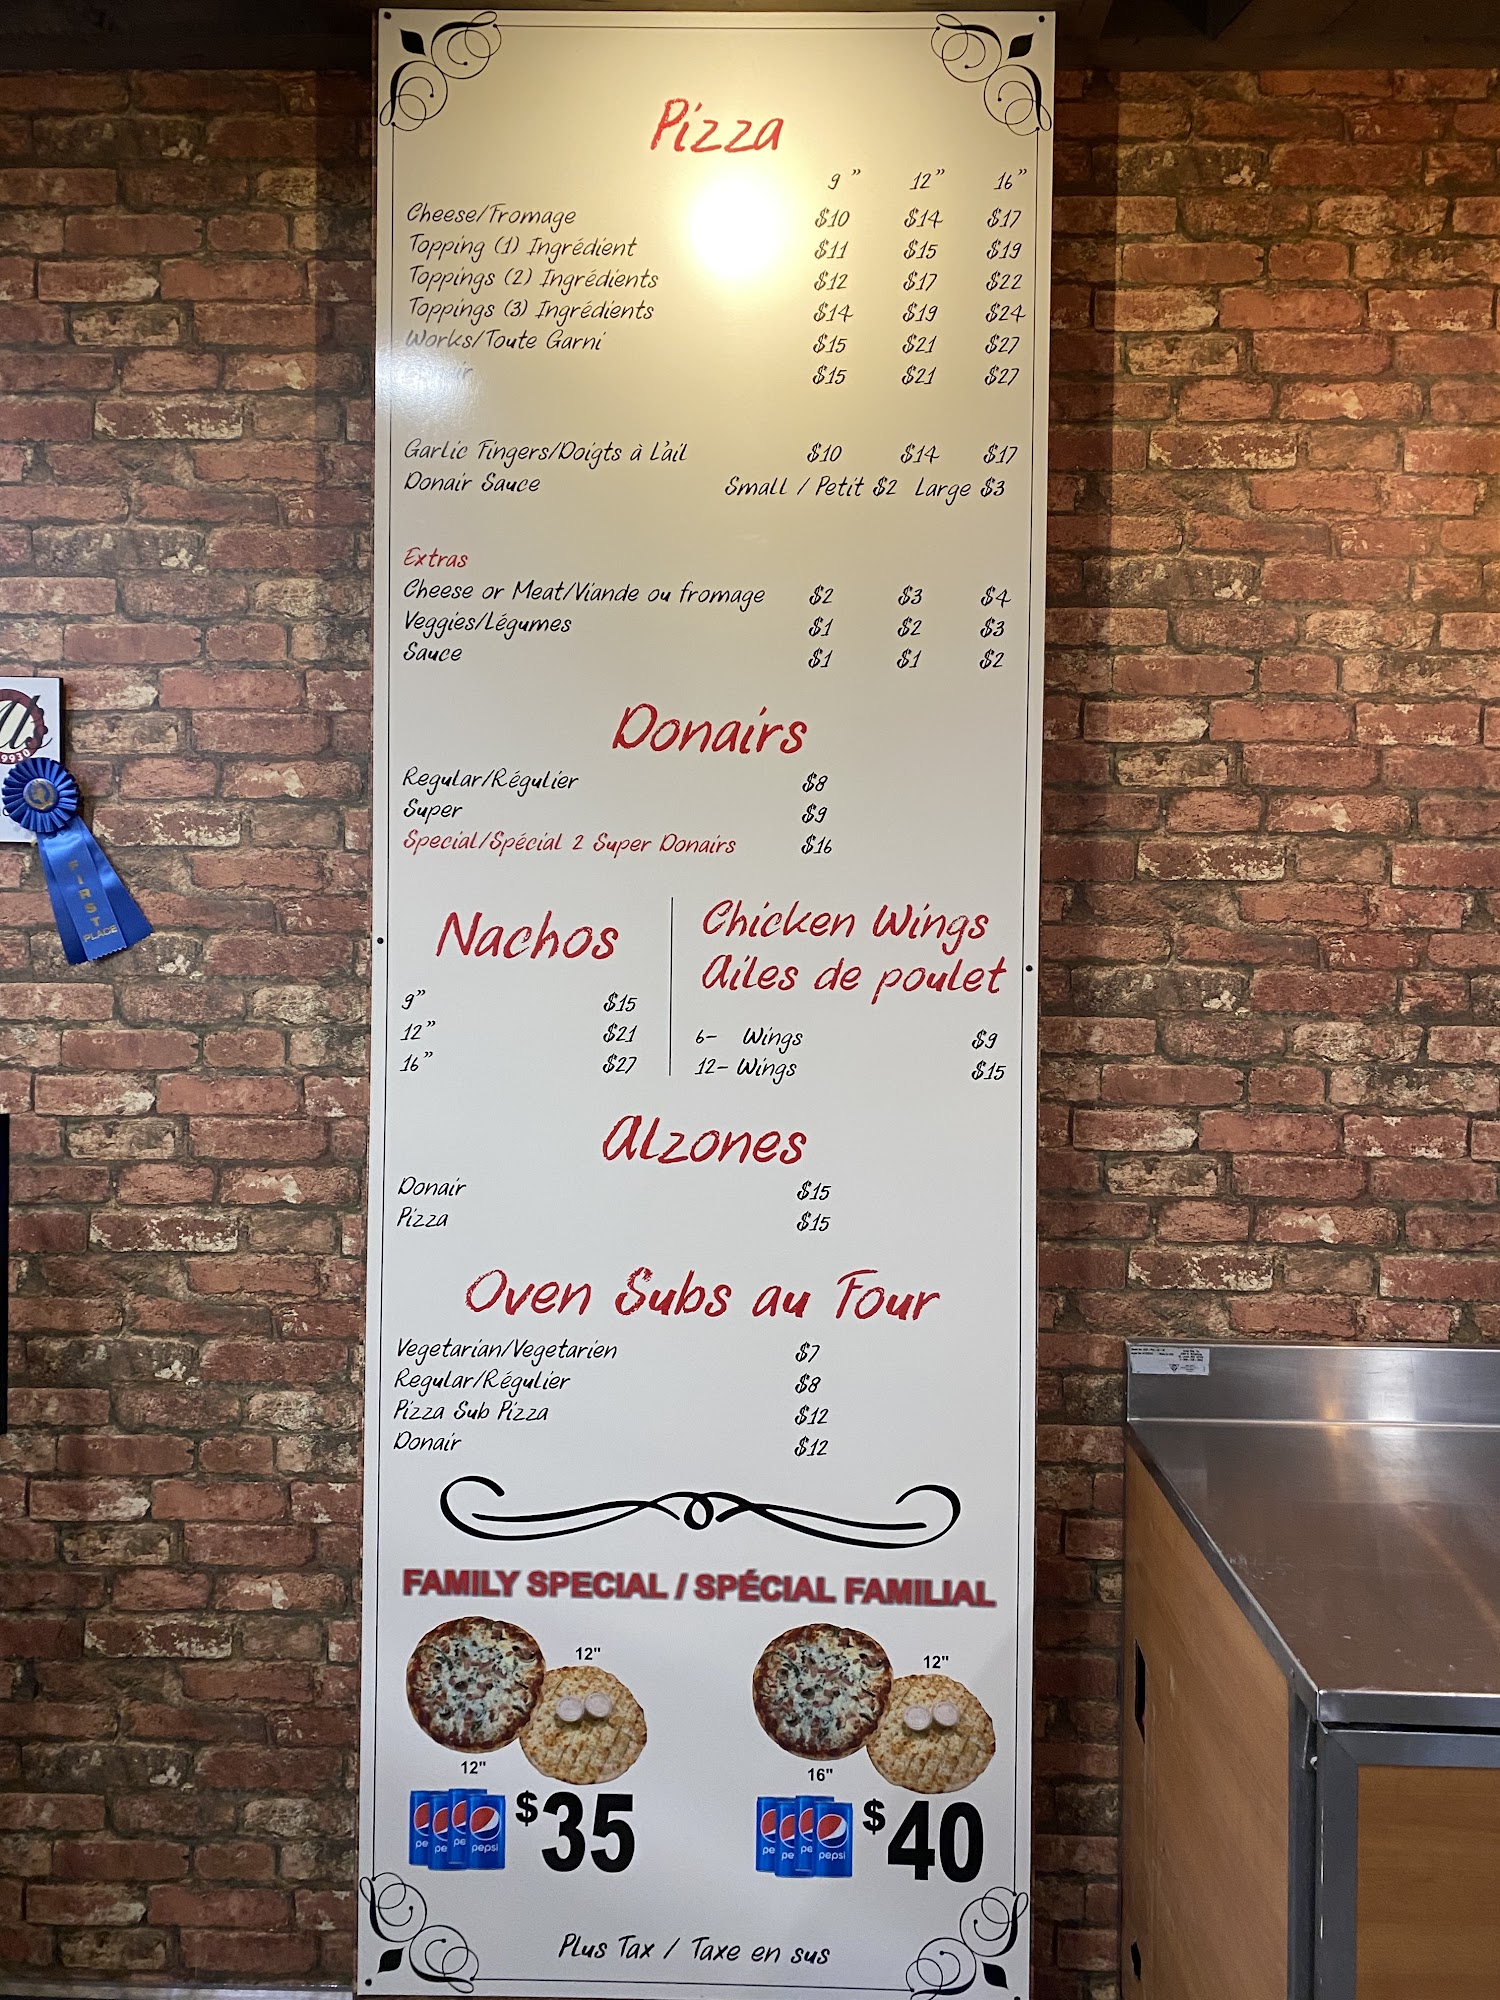 Pizza
9" 12" 16"
Cheese/Fromage $10 $14 $17
Topping (1) Ingrédient $11 $15 $19
Toppings (2) Ingrédients $12 $17 $22
Toppings (3) Ingrédients $14 $19 $24
Works/Toute Garni $15 $21 $27
$15 $21 $27
Garlic Fingers/Doigts à L'ail $10 $14 $17
Donair Sauce Small / Petit $2 Large $3
Extras
Cheese or Meat/Viande ou fromage $2 $3 $4
Veggies/Légumes $1 $2 $3
Sauce $1 $1 $2
Donairs
Regular/Régulier $8
Super $9
Special/Spécial 2 Super Donairs $16
Nachos
9" $15
12" $21
16" $27
Chicken Wings
Ailes de poulet
6- Wings $9
12- Wings $15
Alzones
Donair $15
Pizza $15
Oven Subs au Four
Vegetarian/Vegetarien $7
Regular/Régulier $8
Pizza Sub Pizza $12
Donair $12
FAMILY SPECIAL / SPÉCIAL FAMILIAL
12"
12"
pe pe pe pepsi
$35
12"
16"
pe pe pe pepsi
$40
Plus Tax / Taxe en sus
9930
FIRST
PLACE